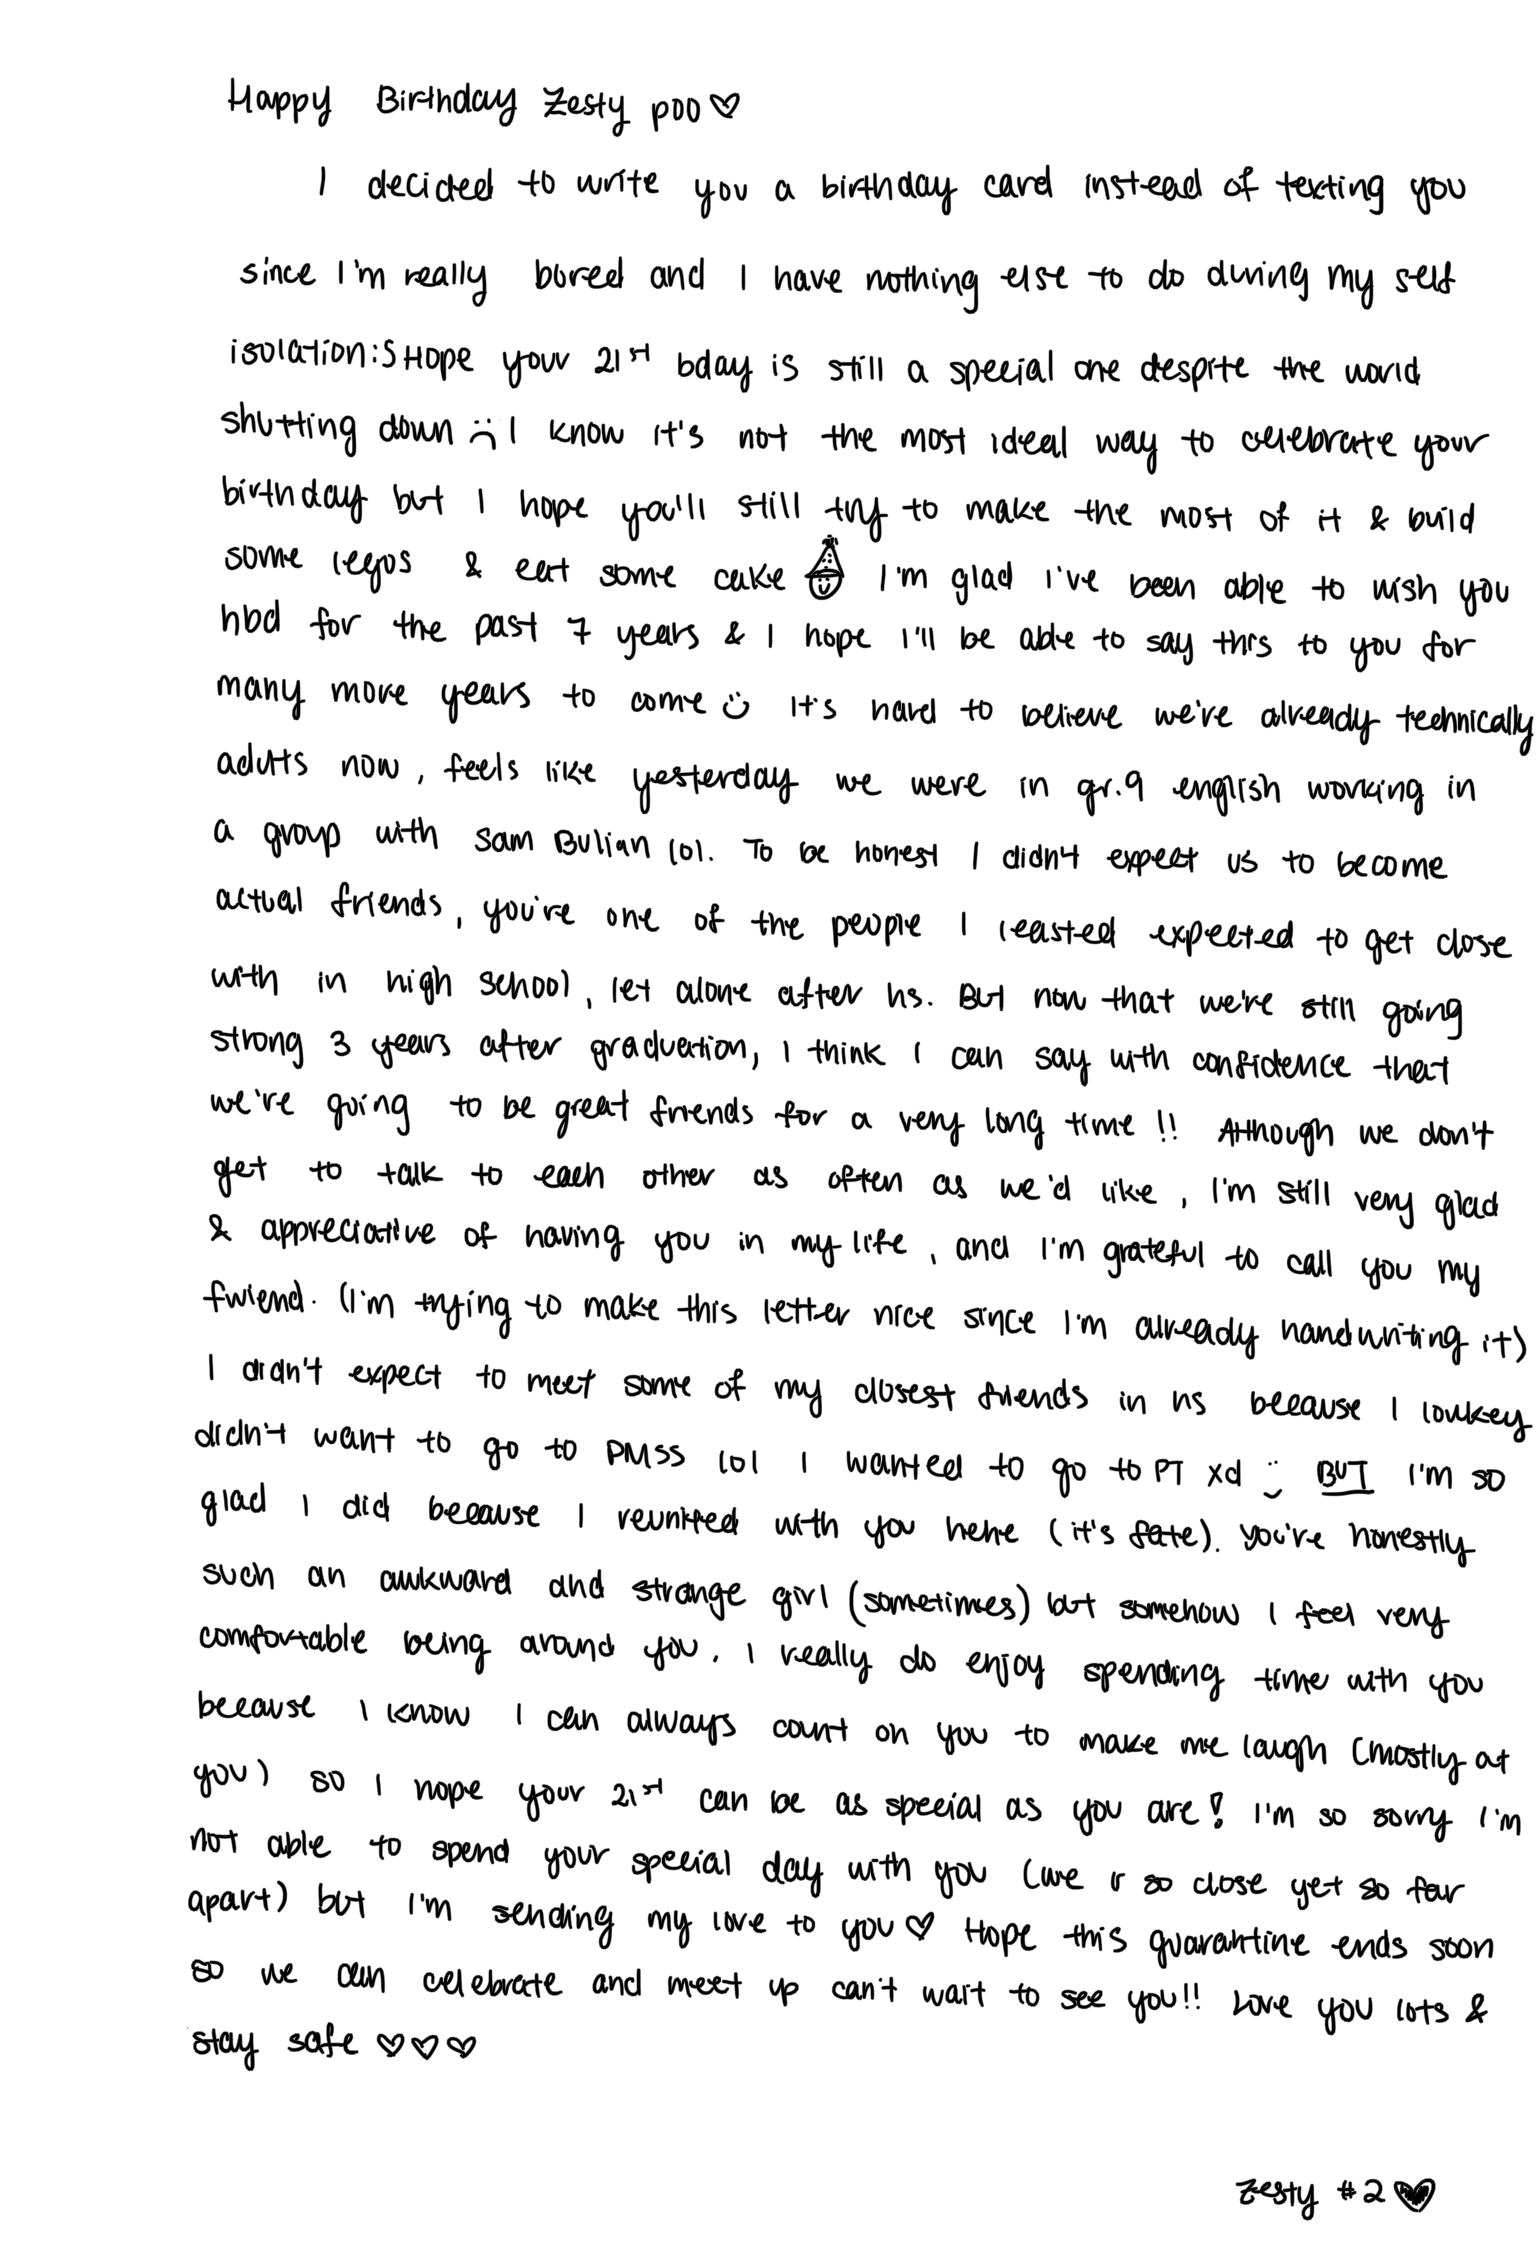 Happy Birthday Zesty poo♡
I decided to write you a birthday card instead of texting you
since I'm really bored and I have nothing else to do during my self
isolation:S Hope your 21st bday is still a special one despite the world
shutting down :( I know it's not the most ideal way to celebrate your
birthday but I hope you'll still try to make the most of it & build
some legos & eat some cake I'm glad I've been able to wish you
hbd for the past 7 years & I hope I'll be able to say this to you for
many more years to come :) It's hard to believe we're already technically
adults now, feels like yesterday we were in gr.9 english working in
a group with Sam Bulian lol. To be honest I didn't expect us to become
actual friends, you're one of the people I leasted expected to get close
with in high school, let alone after hs. But now that we're still going
strong 3 years after graduation, I think I can say with confidence that
we're going to be great friends for a very long time!! Although we don't
get to talk to each other as often as we'd like, I'm still very glad
& appreciative of having you in my life, and I'm grateful to call you my
fwiend. (I'm trying to make this letter nice since I'm already handwriting it)
I didn't expect to meet some of my closest friends in hs because I lowkey
didn't want to go to PMSS lol I wanted to go to PT xd :) BUT I'm so
glad I did because I reunited with you hehe (it's fate). You're honestly
such an awkward and strange girl (sometimes) but somehow I feel very
comfortable being around you. I really do enjoy spending time with you
because I know I can always count on you to make me laugh (mostly at
you) so I hope your 21st can be as special as you are! I'm so sorry I'm
not able to spend your special day with you (we r so close yet so far
apart) but I'm sending my love to you♡ Hope this quarantine ends soon
so we can celebrate and meet up can't wait to see you!! Love you lots &
stay safe ♡♡♡
Zesty #2♥